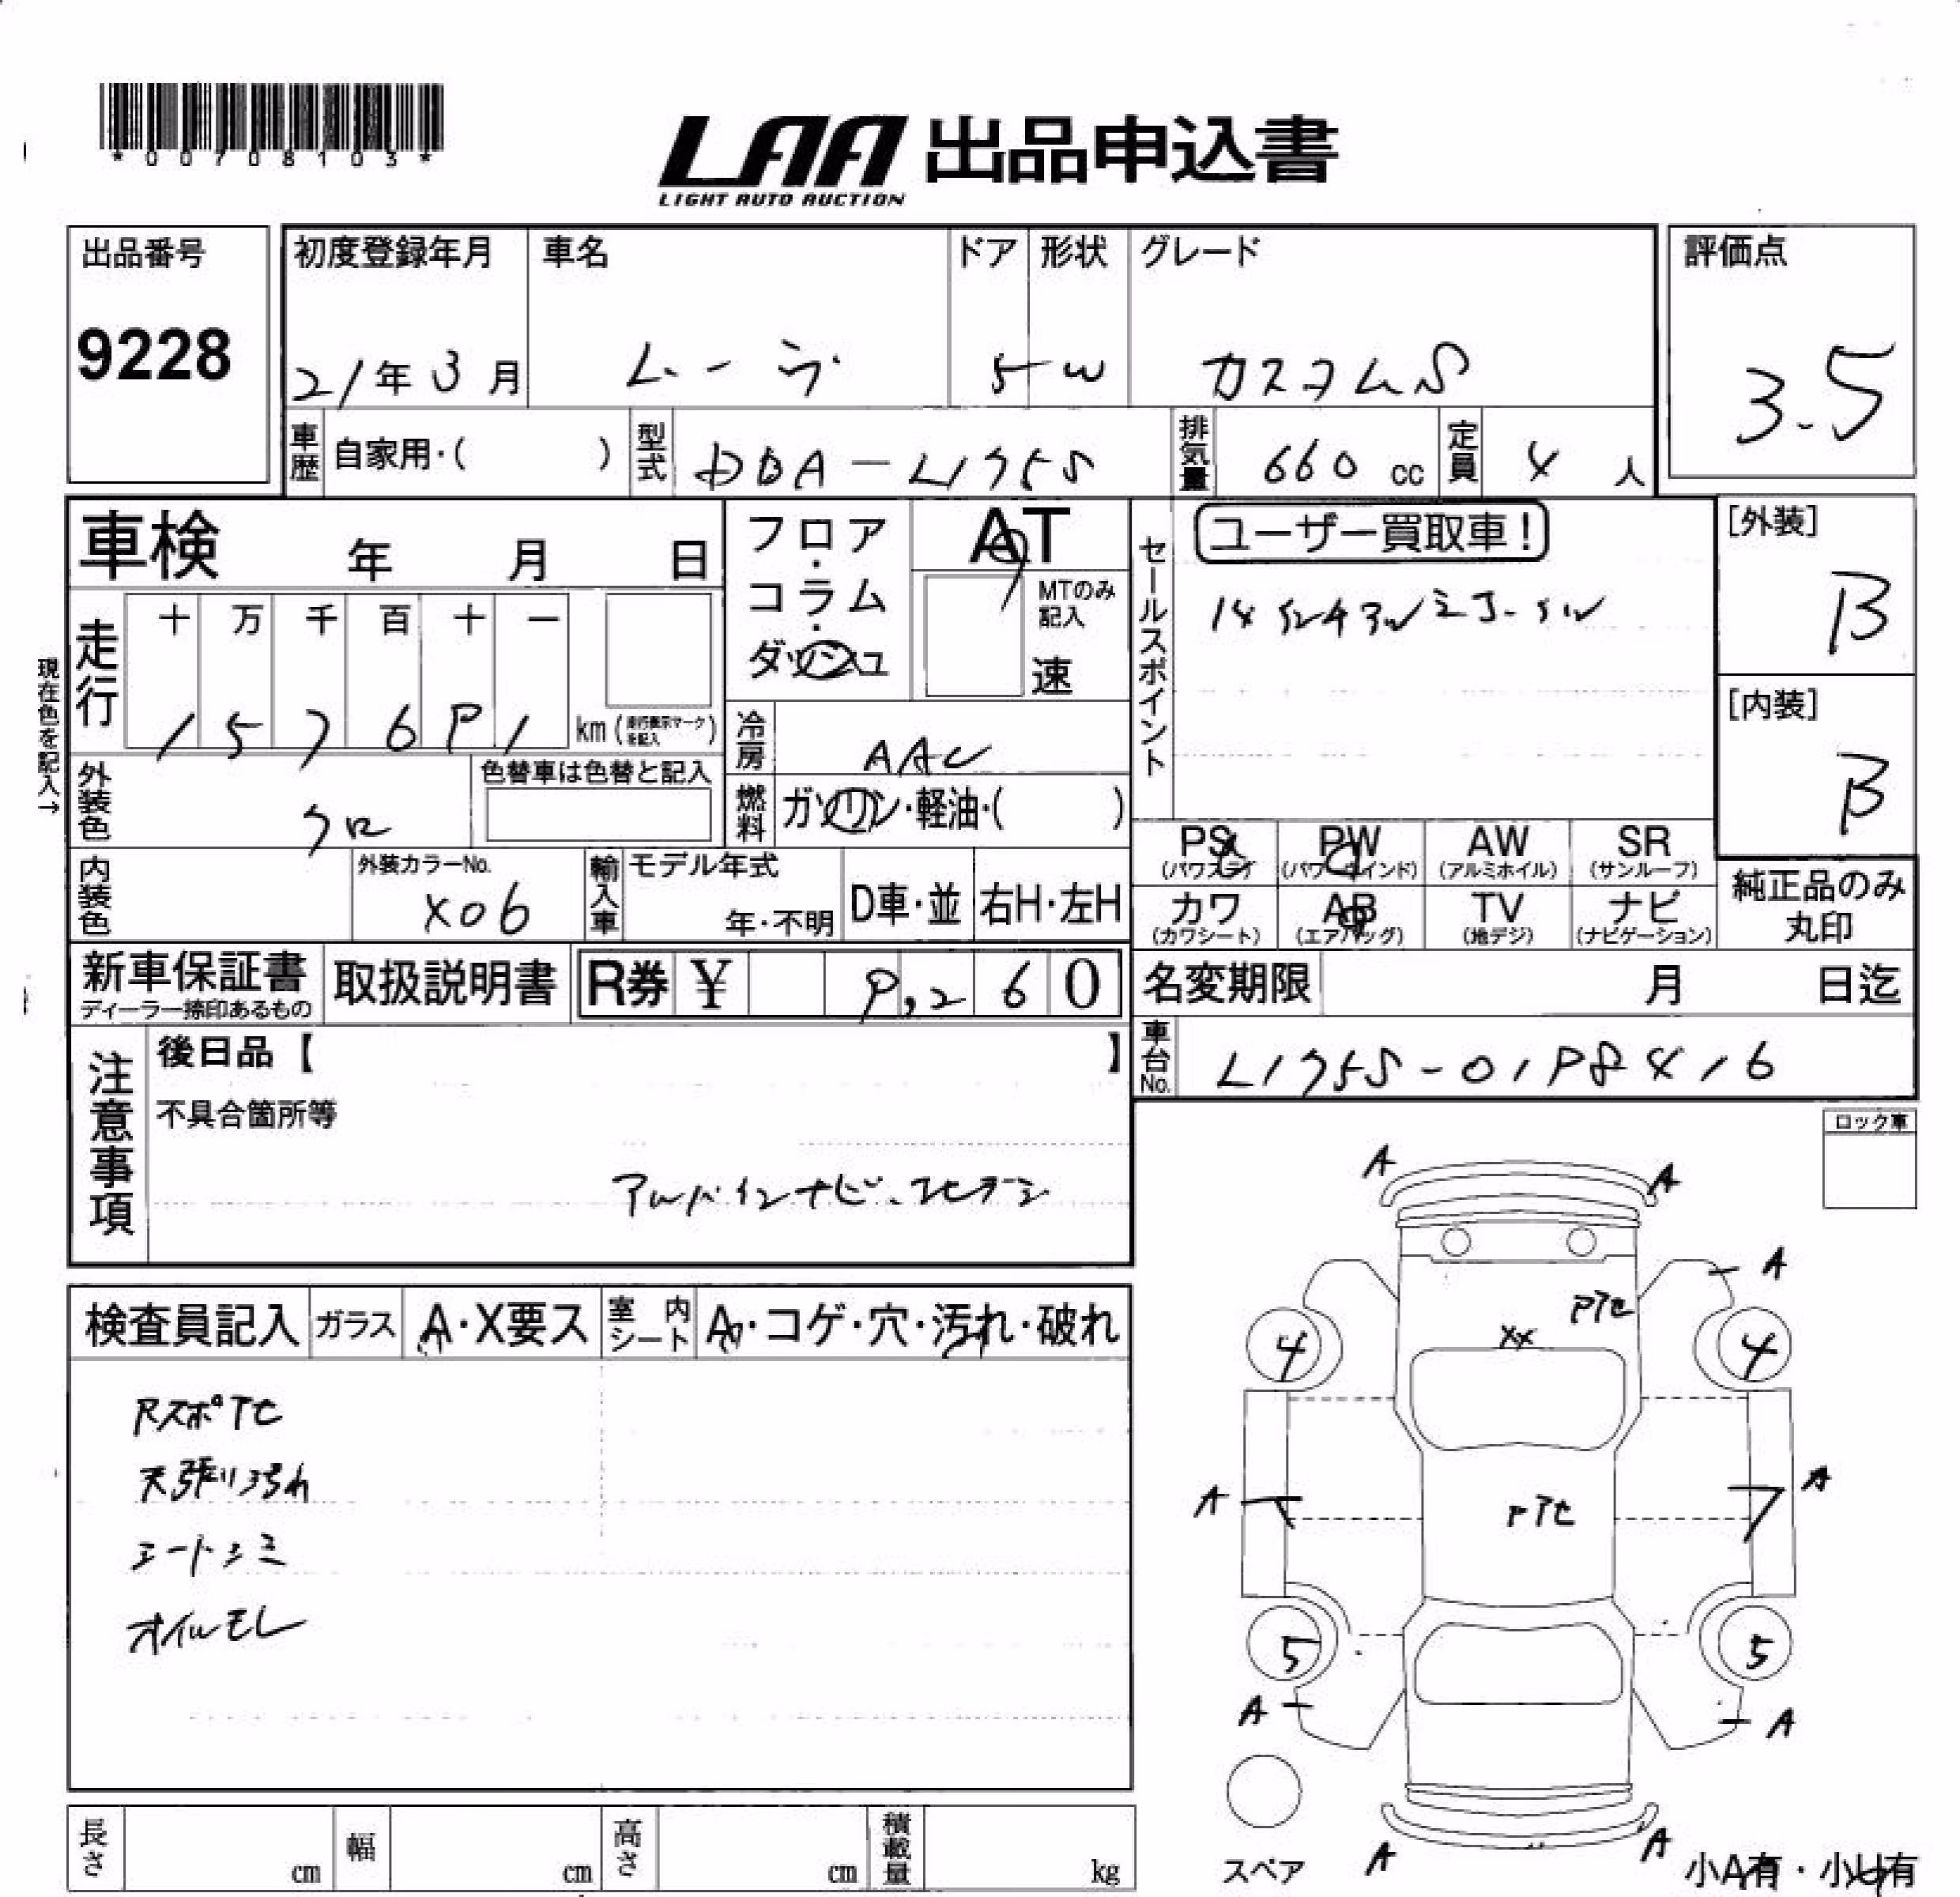 *00708103*
LAA 出品申込書
LIGHT AUTO AUCTION
出品番号
9228
初度登録年月
21年3月
車名
ムーヴ
ドア
5
形状
W
グレード
カスタムS
評価点
3.5
車歴
自家用・( )
型式
DBA-L175S
排気量
660 cc
定員
4 人
車検 年 月 日
フロア・コラム・ダッシュ
AT
MTのみ記入
速
セールスポイント
ユーザー買取車!
[外装]
B
[内装]
B
現在色を記入→
走行
十 万 千 百 十 一
1 5 7 6 9 1 km (走行表示マークを記入)
冷房
AAC
外装色
クロ
色替車は色替と記入
燃料
ガソリン・軽油・( )
内装色
外装カラーNo.
X06
輸入車
モデル年式
年・不明
D車・並
右H・左H
PS (パワステ)
PW (パワーウインド)
AW (アルミホイル)
SR (サンルーフ)
カワ (カワシート)
AB (エアバッグ)
TV (地デジ)
ナビ (ナビゲーション)
純正品のみ丸印
新車保証書
ディーラー捺印あるもの
取扱説明書
R券 ¥ 9,260
名変期限 月 日迄
車台No.
L175S-0198416
注意事項
後日品【 】
不具合箇所等
アルパインナビ.フルセグ
ロック車
検査員記入
ガラス
A・X要ス
室内シート
A・コゲ・穴・汚れ・破れ
RスポTヒ
天張り汚れ
シートシミ
オイルモレ
A A
A
PTヒ
XX
4 4
A A
PTヒ
5 5
A A
スペア
A A
小A有・小U有
長さ cm
幅 cm
高さ cm
積載量 kg